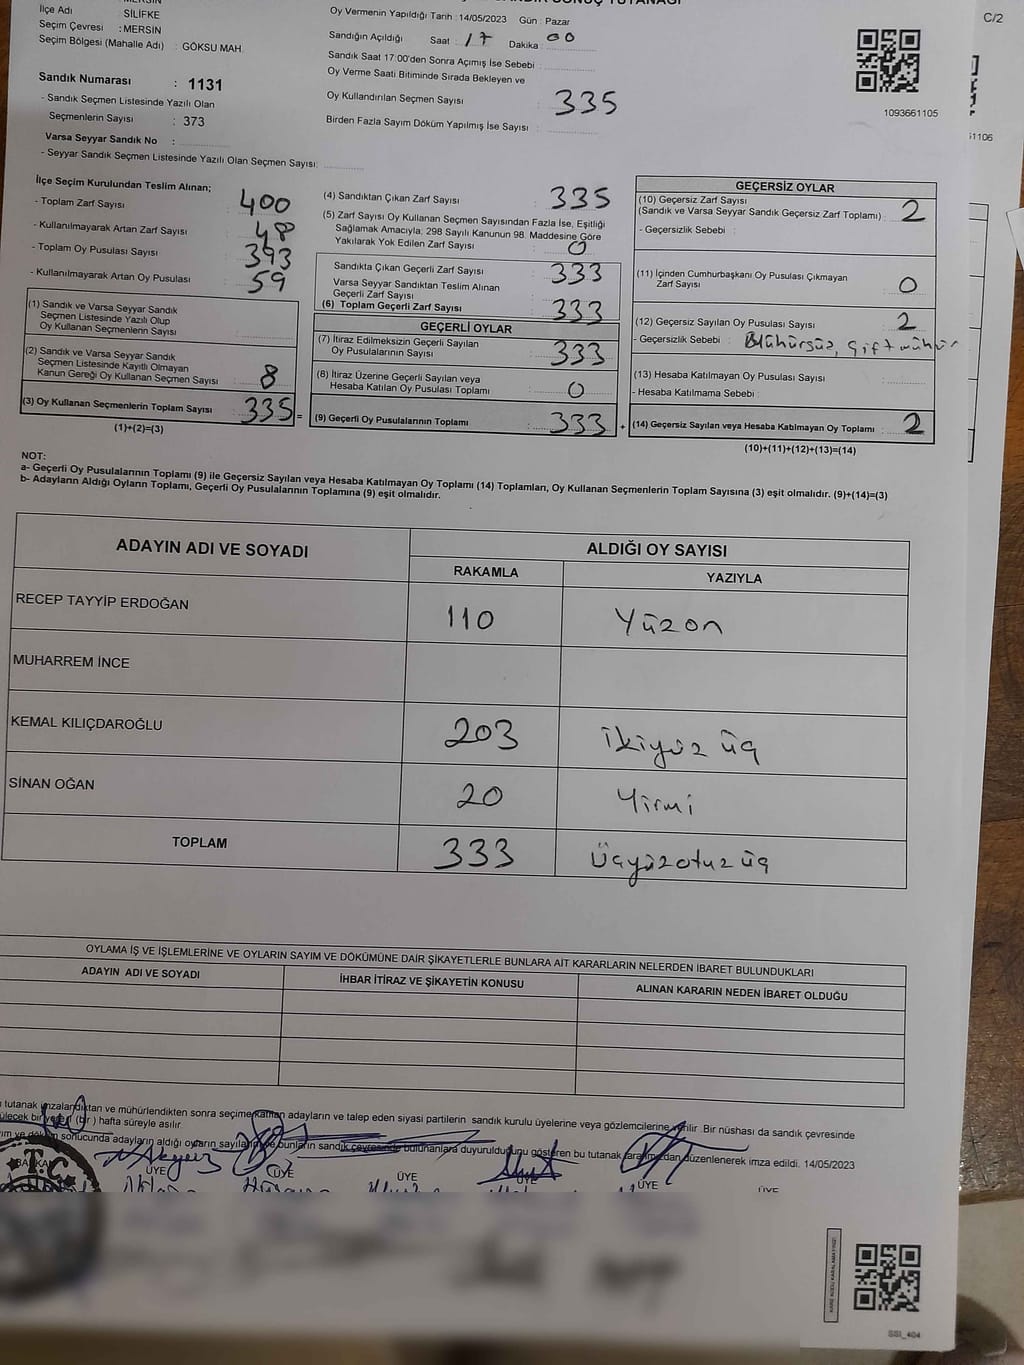 MERSİN
İlçe Adı : SİLİFKE
Seçim Çevresi : MERSİN
Seçim Bölgesi (Mahalle Adı) : GÖKSU MAH.
Sandık Numarası : 1131
- Sandık Seçmen Listesinde Yazılı Olan
Seçmenlerin Sayısı : 373
Varsa Seyyar Sandık No :
- Seyyar Sandık Seçmen Listesinde Yazılı Olan Seçmen Sayısı:
SANDIK SONUÇ TUTANAĞI
Oy Vermenin Yapıldığı Tarih : 14/05/2023 Gün : Pazar
Sandığın Açıldığı Saat : 17 Dakika : 00
Sandık Saat 17:00'den Sonra Açımış İse Sebebi :
Oy Verme Saati Bitiminde Sırada Bekleyen ve
Oy Kullandırılan Seçmen Sayısı : 335
Birden Fazla Sayım Döküm Yapılmış İse Sayısı :
C/2
1093661105
61106
İlçe Seçim Kurulundan Teslim Alınan;
- Toplam Zarf Sayısı : 400
- Kullanılmayarak Artan Zarf Sayısı : 48
- Toplam Oy Pusulası Sayısı : 393
- Kullanılmayarak Artan Oy Pusulası : 59
(1) Sandık ve Varsa Seyyar Sandık
Seçmen Listesinde Yazılı Olup
Oy Kullanan Seçmenlerin Sayısı :
(2) Sandık ve Varsa Seyyar Sandık
Seçmen Listesinde Kayıtlı Olmayan
Kanun Gereği Oy Kullanan Seçmen Sayısı : 8
(3) Oy Kullanan Seçmenlerin Toplam Sayısı : 335 =
(1)+(2)=(3)
(4) Sandıktan Çıkan Zarf Sayısı : 335
(5) Zarf Sayısı Oy Kullanan Seçmen Sayısından Fazla İse, Eşitliği
Sağlamak Amacıyla; 298 Sayılı Kanunun 98. Maddesine Göre
Yakılarak Yok Edilen Zarf Sayısı : 0
Sandıkta Çıkan Geçerli Zarf Sayısı : 333
Varsa Seyyar Sandıktan Teslim Alınan
Geçerli Zarf Sayısı
(6) Toplam Geçerli Zarf Sayısı : 333
GEÇERLİ OYLAR
(7) İtiraz Edilmeksizin Geçerli Sayılan
Oy Pusulalarının Sayısı : 333
(8) İtiraz Üzerine Geçerli Sayılan veya
Hesaba Katılan Oy Pusulası Toplamı : 0
(9) Geçerli Oy Pusulalarının Toplamı : 333 +
GEÇERSİZ OYLAR
(10) Geçersiz Zarf Sayısı
(Sandık ve Varsa Seyyar Sandık Geçersiz Zarf Toplamı) : 2
- Geçersizlik Sebebi :
(11) İçinden Cumhurbaşkanı Oy Pusulası Çıkmayan
Zarf Sayısı : 0
(12) Geçersiz Sayılan Oy Pusulası Sayısı : 2
- Geçersizlik Sebebi : Mühürsüz, Çift mühür
(13) Hesaba Katılmayan Oy Pusulası Sayısı :
- Hesaba Katılmama Sebebi :
(14) Geçersiz Sayılan veya Hesaba Katılmayan Oy Toplamı : 2
(10)+(11)+(12)+(13)=(14)
NOT:
a- Geçerli Oy Pusulalarının Toplamı (9) ile Geçersiz Sayılan veya Hesaba Katılmayan Oy Toplamı (14) Toplamları, Oy Kullanan Seçmenlerin Toplam Sayısına (3) eşit olmalıdır. (9)+(14)=(3)
b- Adayların Aldığı Oyların Toplamı, Geçerli Oy Pusulalarının Toplamına (9) eşit olmalıdır.
ADAYIN ADI VE SOYADI ALDIĞI OY SAYISI
RAKAMLA YAZIYLA
RECEP TAYYİP ERDOĞAN 110 Yüzon
MUHARREM İNCE
KEMAL KILIÇDAROĞLU 203 ikiyüz üç
SİNAN OĞAN 20 Yirmi
TOPLAM 333 Üçyüzotuz üç
OYLAMA İŞ VE İŞLEMLERİNE VE OYLARIN SAYIM VE DÖKÜMÜNE DAİR ŞİKAYETLERLE BUNLARA AİT KARARLARIN NELERDEN İBARET BULUNDUKLARI
ADAYIN ADI VE SOYADI İHBAR İTİRAZ VE ŞİKAYETİN KONUSU ALINAN KARARIN NEDEN İBARET OLDUĞU
tutanak imzalandıktan ve mühürlendikten sonra seçime katılan adayların ve talep eden siyasi partilerin sandık kurulu üyelerine veya gözlemcilerine verilir. Bir nüshası da sandık çevresinde
bir yere (bir) hafta süreyle asılır.
sonucunda adayların aldığı oyların bunların sandık çevresinde bulunanlara duyurulduğunu gösteren bu tutanak tarafımızdan düzenlenerek imza edildi. 14/05/2023
T.C.
BAŞKAN ÜYE ÜYE ÜYE ÜYE ÜYE ÜYE
KARE KODU KARALAMAYINIZ!
SSI_404